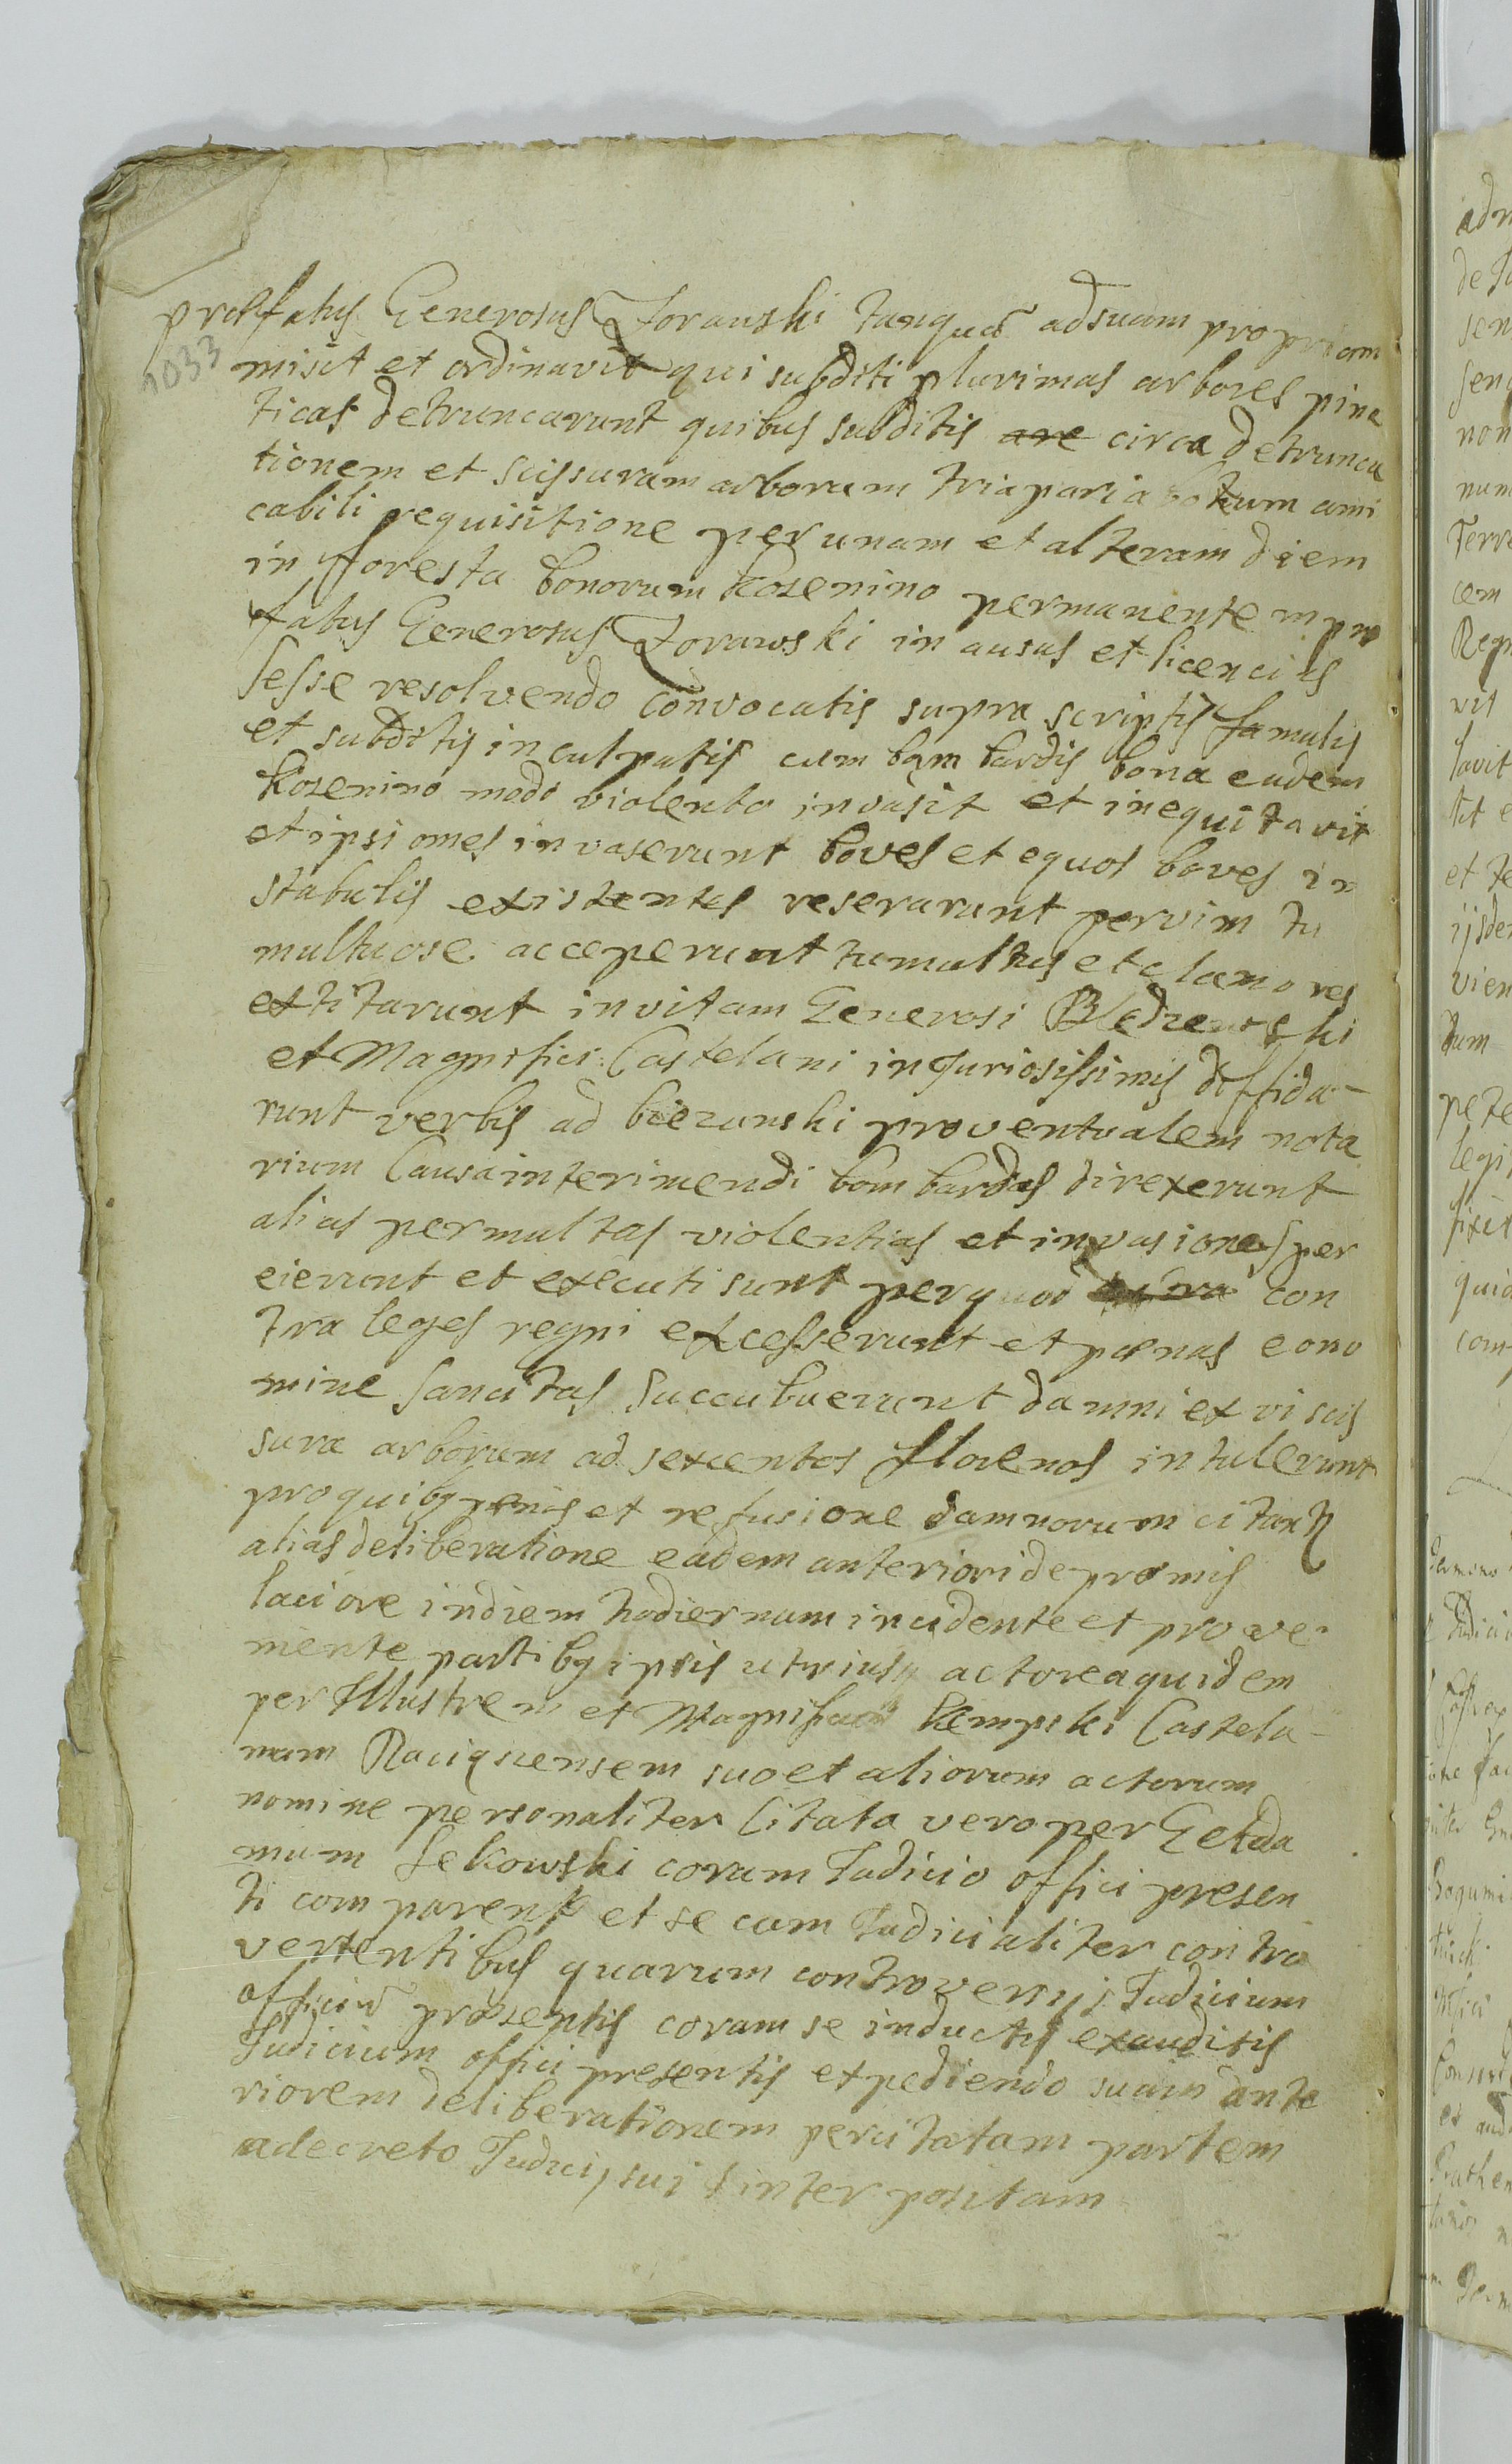 præfatus Generosus Zorawski tanquā ad suam propriam
1033
misit et ordinavit qui subditi plurimas arbores pina
ticas detruncarunt quibus subditis are circa detrunca
tionem et scissuram arborum tria paria boum ami
cabili requisitione per unam et alteram diem
in foresta bonorum Kosenino permanentem præ
fatus Generosus Zorawski in ausus et licencias
sesse resolvendo convocatis supra scriptis famulis
et subditis inculpatis cum bombardis bona eadem
Kosenino modo violento invasit et inequitavit
et ipsi omes invaserunt boves et equos boves in
stabulis existentes reserarunt per vim tu
multuose acceperunt tumultus et clamores
extitarunt in vitam Generosi Bledzewski
et Magnifici Castelani injuriosissimis diffida-
runt verbis ad biezunski proventualem nota
rium Causa interimendi bombardas direxerunt
alias permultas violentias et invasiones per
eierunt et executi sunt per quod con
tra leges regni excesserunt et pænas eo no
mine sancitas succubuerunt damni ex vi scis
sura arborum ad sexcentos florenos intulerunt
pro quibq penis et refusione damnorum citant
alias deliberatione eadem anteriori de præmis
laciore in diem hodiernam incidente et prove-
niente partibq ipsis utriusq actorea quidem
per Illustrem et Magnificum Kempski Castela-
num Raciąznensem suo et aliorum actorum
nomine personaliter Citata vero per G Ada
mum Lekowski coram Judicio offici presen
ti comparent et se cum Judicialiter contro
vertentibus quarum controversijs Judicium
officiū præsentis coram se inductis exauditis
Judicium offici presentis expediendo suam ante
riorem deliberationem per citatam partem
a decreto Judicij sui interpositam